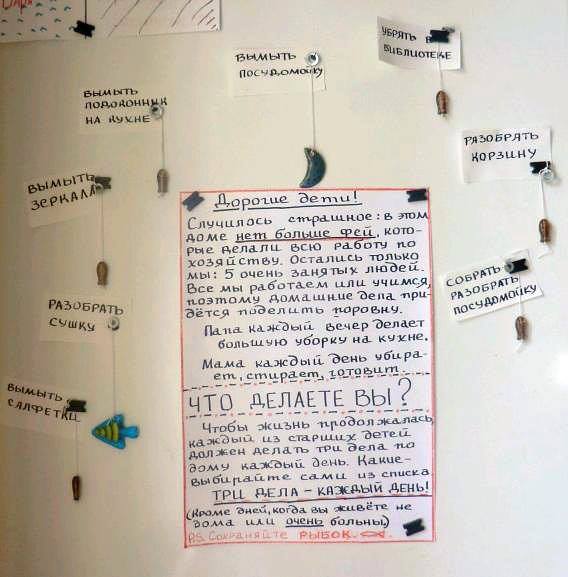 ВЫМЫТЬ
ПОСУДОМОЙКУ
УБРАТЬ В
БИБЛИОТЕКЕ
ВЫМЫТЬ
ПОДОКОННИК
НА КУХНЕ
РАЗОБРАТЬ
КОРЗИНУ
ВЫМЫТЬ
ЗЕРКАЛА
СОБРАТЬ -
РАЗОБРАТЬ
ПОСУДОМОЙКУ
РАЗОБРАТЬ
СУШКУ
ВЫМЫТЬ
САЛФЕТКИ
Дорогие дети!
Случилось страшное: в этом
доме нет больше фей, кото-
рые делали всю работу по
хозяйству. Остались только
мы: 5 очень занятых людей.
Все мы работаем или учимся,
поэтому домашние дела при-
дётся поделить поровну.
Папа каждый вечер делает
большую уборку на кухне.
Мама каждый день убира-
ет, стирает, готовит.
ЧТО ДЕЛАЕТЕ ВЫ?
Чтобы жизнь продолжалась,
каждый из старших детей
должен делать три дела по
дому каждый день. Какие-
выбирайте сами из списка.
ТРИ ДЕЛА - КАЖДЫЙ ДЕНЬ!
(Кроме дней, когда вы живёте не
дома или очень больны.)
P.S. Сохраняйте РЫБОК.